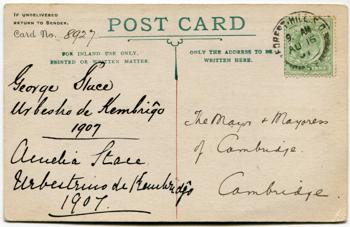 IF UNDELIVERED
RETURN TO SENDER.
Card No. 8927
POST CARD
FOR INLAND USE ONLY.
PRINTED OR WRITTEN MATTER.
ONLY THE ADDRESS TO BE
WRITTEN HERE.
FOREST-HILL S.E.
AU 15
George Stace
Urbestro de Kembriĝo
1907
Amelia Stace
Urbestrino de Kembriĝo
1907.
The Mayor & Mayoress
of Cambridge.
Cambridge.